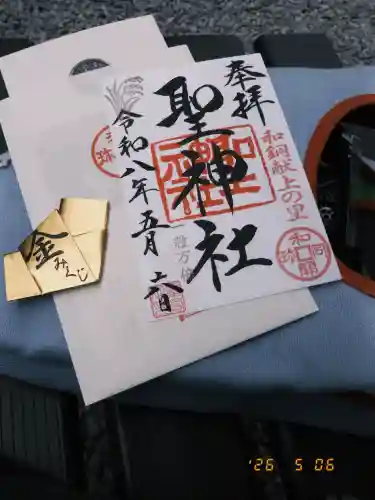 奉拝
和銅献上の里
聖神社
聖神社
令和八年五月六日
和同開珎
金
みくじ
'26 5 06